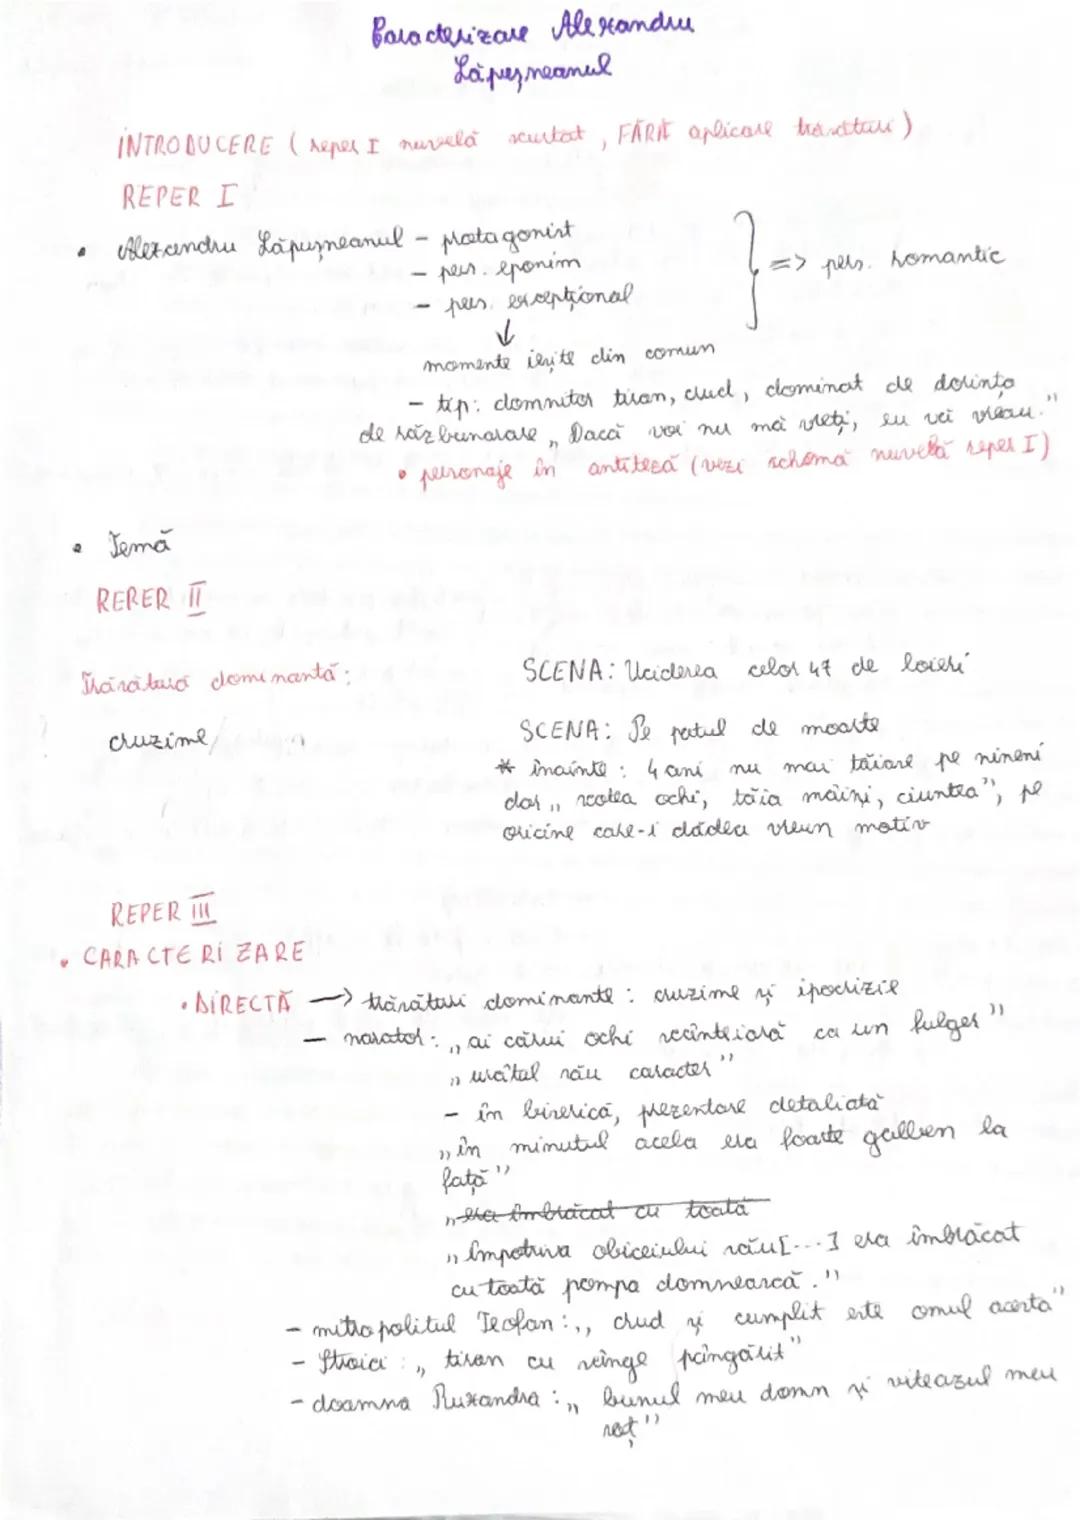 Caracterizare Alexandru
Lăpușneanul
INTRODUCERE (reper I nuvelă scurtat, FĂRĂ aplicare trăsături)
REPER I
• Alexandru Lăpușneanul - protagonist
- pers. eponim
- pers. excepțional
} => pers. romantic
↓
momente ieșite din comun
- tip: domnitor tiran, crud, dominat de dorința
de răzbunarare „Dacă voi nu mă vreți, eu vă vreau."
• personaje în antiteză (vezi schema nuvelă reper I)
• Temă
RERER II
Trăsătură dominantă:
cruzime
SCENA: Uciderea celor 47 de boieri
SCENA: Pe patul de moarte
* înainte: 4 ani nu mai tăiare pe nineni
dar „scotea ochi, tăia mâini, ciuntea", pe
oricine care-i dădea vreun motiv
REPER III
• CARACTERIZARE
• DIRECTĂ → trăsături dominante: cruzime și ipocrizie
- narator: „ai cărui ochi scânteiară ca un fulger"
„urâtul rău caracter"
- în biserică, prezentare detaliată
„în minutul acela era foarte galben la
față"
„era îmbrăcat cu toată
„Împotriva obiceiului său[...] era îmbrăcat
cu toată pompa domnească."
- mitropolitul Teofan: „crud și cumplit este omul acesta"
- Stroici: „tiran cu sânge pângărit"
- doamna Ruxandra: „bunul meu domn și viteazul meu
soț"